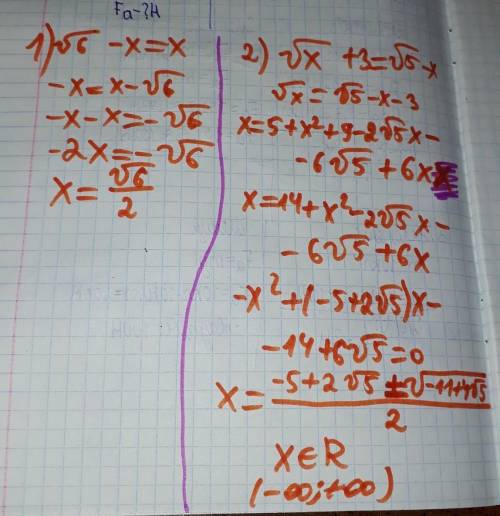 Fa-?H
1) √6 - x = x
-x = x - √6
-x - x = - √6
-2x = - √6
x = √6/2
2) √x + 3 = √5 - x
√x = √5 - x - 3
x = 5 + x² + 9 - 2√5x -
- 6√5 + 6x
x = 14 + x² - 2√5x -
- 6√5 + 6x
-x² + (-5 + 2√5)x -
- 14 + 6√5 = 0
x = (-5 + 2√5 ± √(-11 + 4√5))/2
x ∈ R
(-∞; +∞)